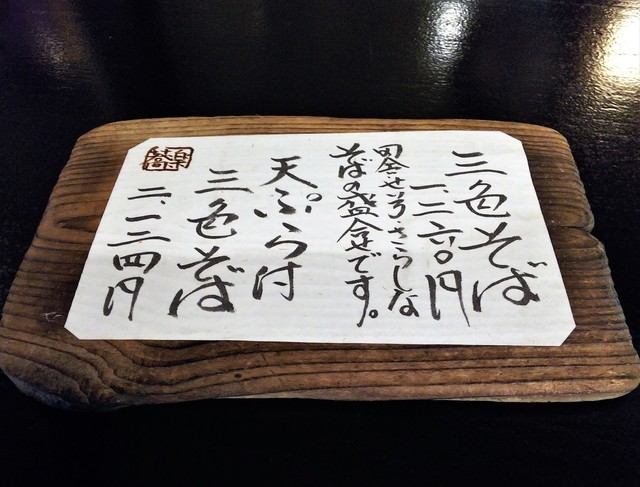 三色そば
一、二六〇円
田舎・せいろ・さらしな
そばの盛合せです。
天ぷら付
三色そば
二、一三四円